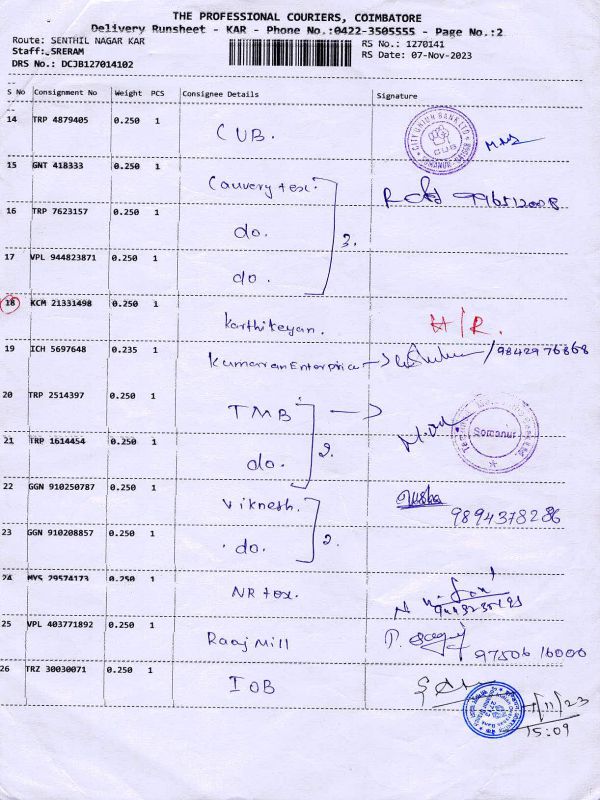 THE PROFESSIONAL COURIERS, COIMBATORE
Delivery Runsheet - KAR - Phone No.:0422-3505555 - Page No.:2
Route: SENTHIL NAGAR KAR
RS No.: 1270141
Staff: SRERAM
RS Date: 07-Nov-2023
DRS No.: DCJB127014102
S No Consignment No Weight PCS Consignee Details Signature
14 TRP 4879405 0.250 1 CUB.
CITY UNION BANK LTD
CUB
15 GNT 418333 0.250 1 Cauvery tex.
16 TRP 7623157 0.250 1 do. 3.
17 VPL 944823871 0.250 1 do.
18 KCM 21331498 0.250 1 Karthikeyan. H/R.
19 ICH 5697648 0.235 1 Kumarran Enterprice /9842976868
20 TRP 2514397 0.250 1 TMB
Somanur
21 TRP 1614454 1 do. 2.
22 GGN 910250787 0.250 1 Viknesh. Nusha
9894378286
23 GGN 910208857 0.250 1 do. 2.
24 MYS 29574173 0.250 1 NR tex.
25 VPL 403771892 0.250 1 Raaj Mill
97506 16000
26 TRZ 30030071 0.250 1 IOB
/11/23
15:09